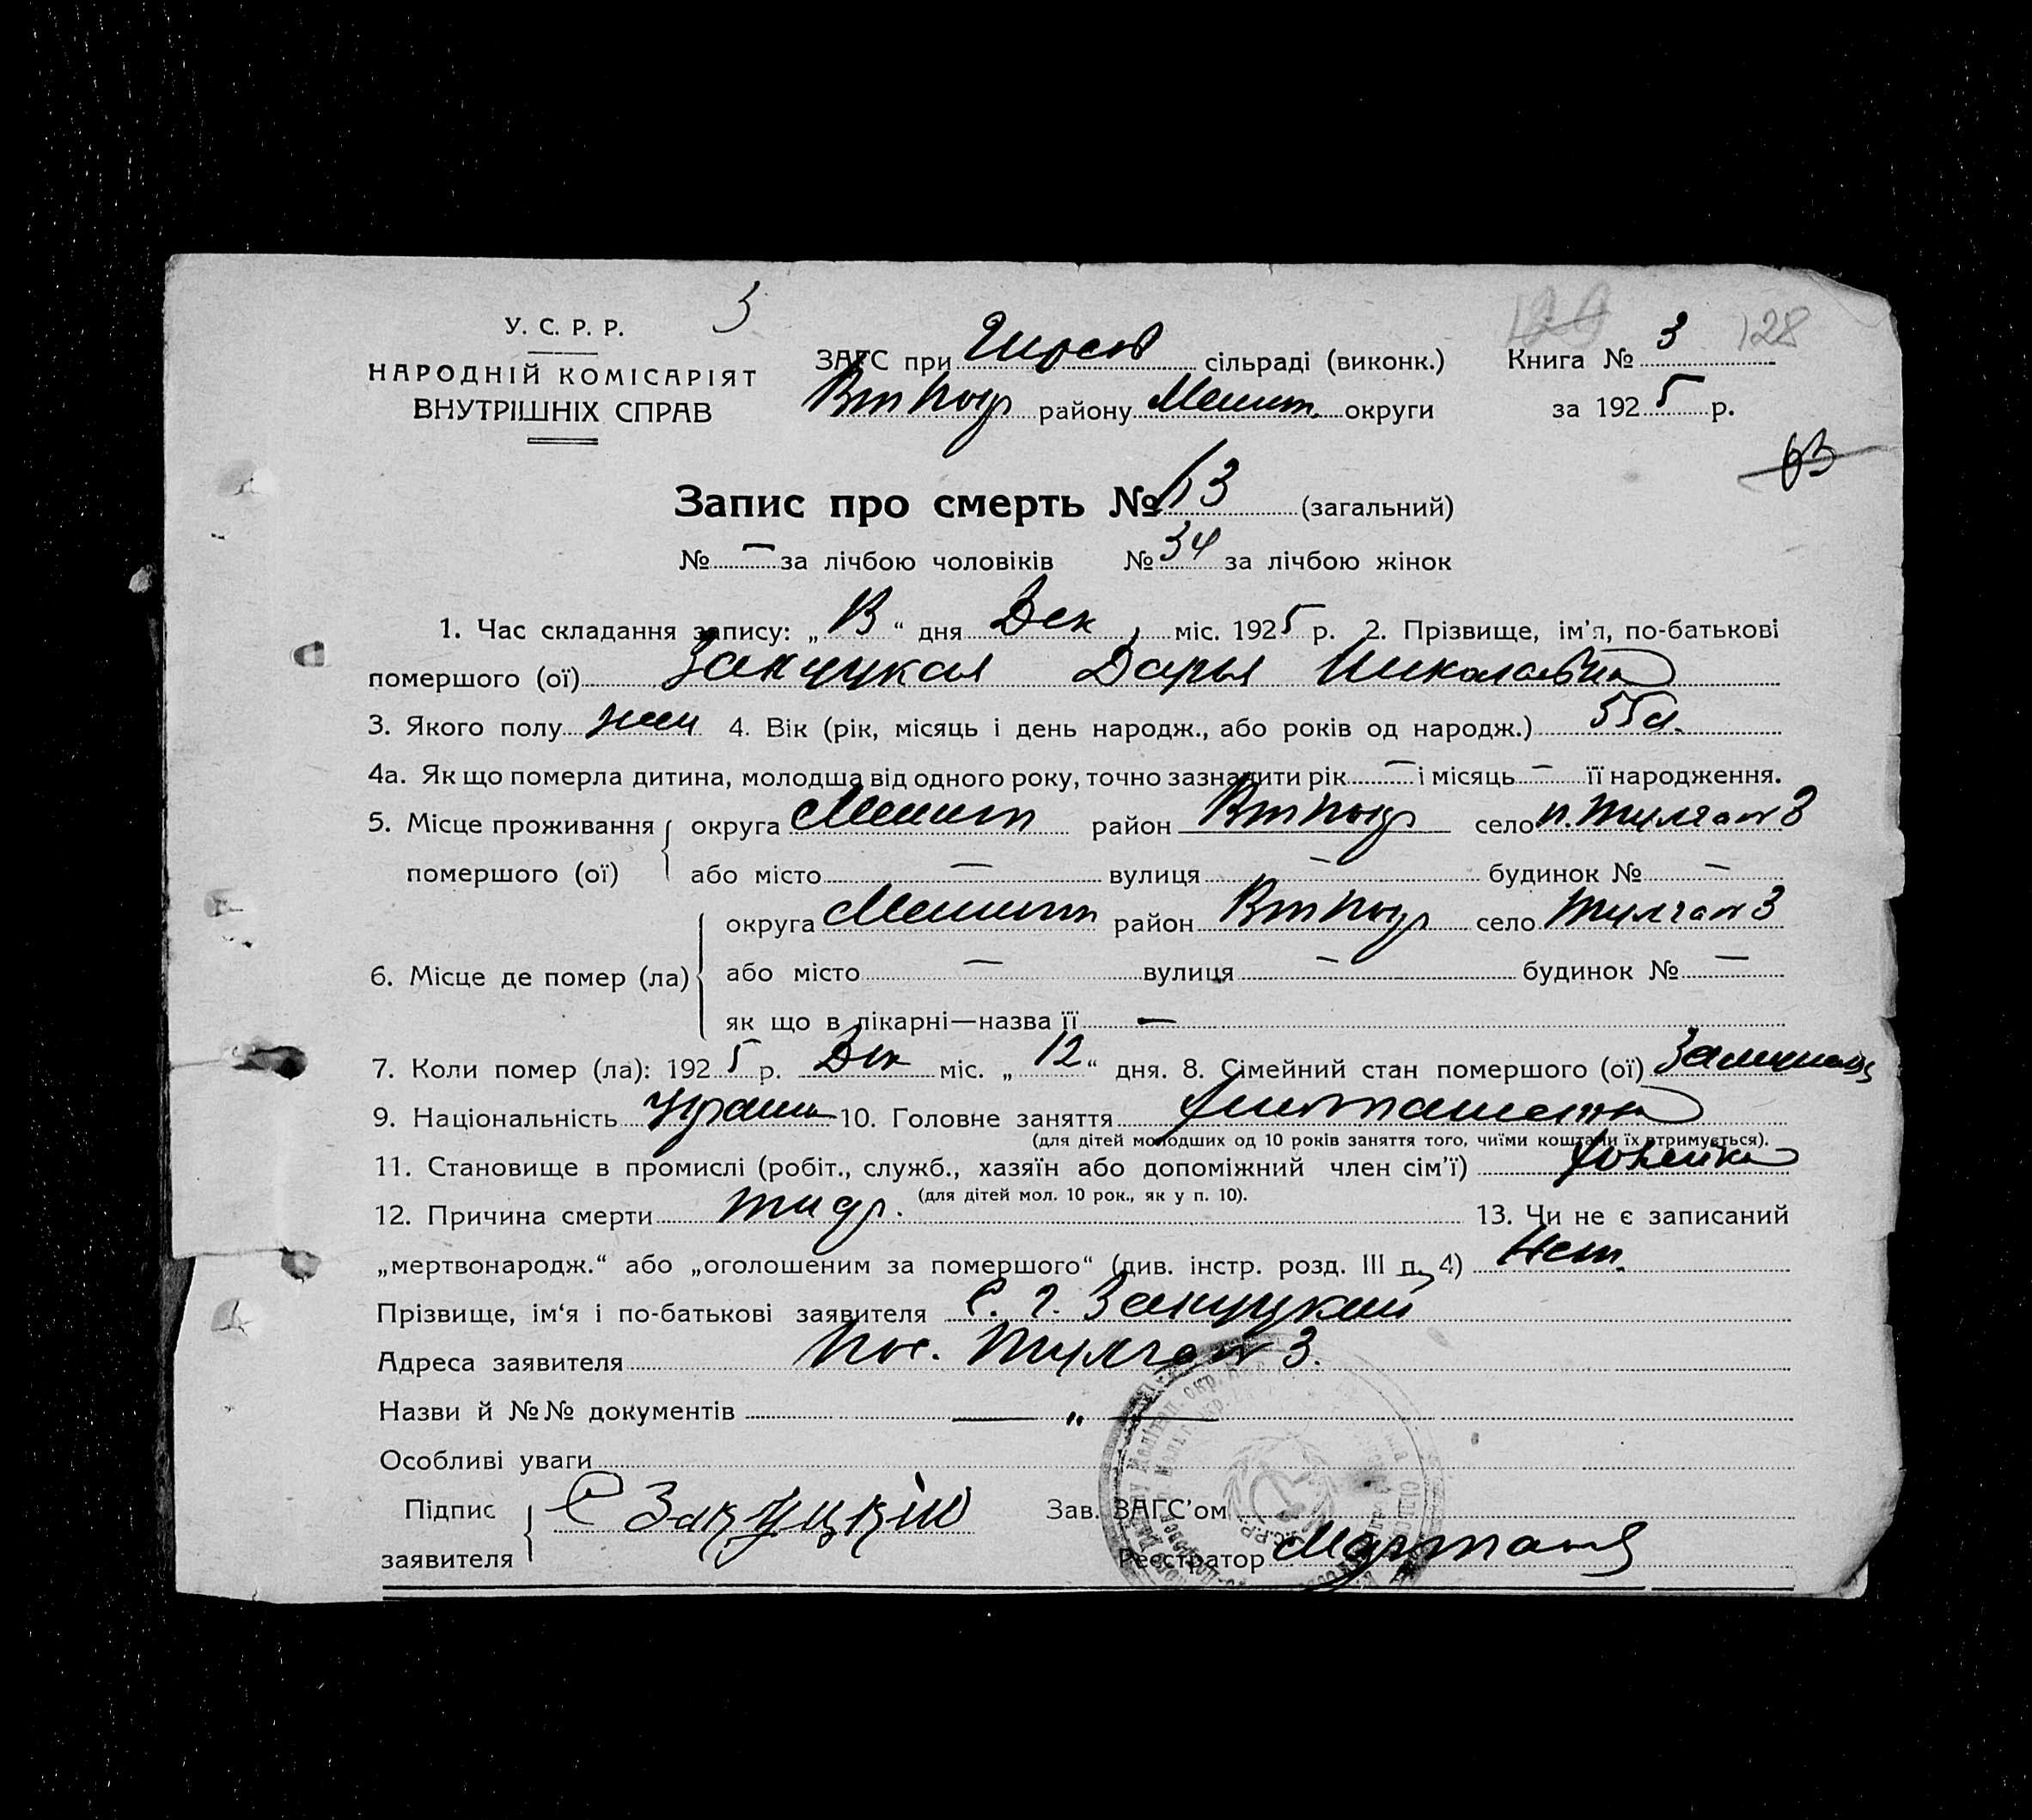 3
У. С. Р. Р.
НАРОДНІЙ КОМІСАРІЯТ
ВНУТРІШНІХ СПРАВ
ЗАГС при сільраді (виконк.)
району Мелит. округи
Книга № 3 128
за 1925 р.
63
Запис про смерть № 63 (загальний)
№ — за лічбою чоловіків № 34 за лічбою жінок
1. Час складання запису: „13“ дня Дек міс. 1925 р. 2. Прізвище, ім'я, по-батькові
помершого (ої) Закуцкая Дарья Николаевна
3. Якого полу жен 4. Вік (рік, місяць і день народж., або років од народж.) 55 л.
4а. Як що померла дитина, молодша від одного року, точно зазначити рік — і місяць — її народження.
5. Місце проживання округа Мелит район село п. Тилган 3
помершого (ої) або місто — вулиця — будинок № —
округа Мелит район село Тилган 3
6. Місце де помер (ла) або місто — вулиця — будинок № —
як що в лікарні—назва її —
7. Коли помер (ла): 1925 р. Дек міс. „12“ дня. 8. Сімейний стан помершого (ої)
9. Національність 10. Головне заняття
(для дітей молодших од 10 років заняття того, чиїми коштами їх втримується).
11. Становище в промислі (робіт., служб., хазяїн або допоміжний член сім'ї) хозяйка
(для дітей мол. 10 рок., як у п. 10).
12. Причина смерти 13. Чи не є записаний
„мертвонародж.“ або „оголошеним за помершого“ (див. інстр. розд. III п. 4) Нет.
Прізвище, ім'я і по-батькові заявителя С. Г. Закуцкий
Адреса заявителя пос. Тилган 3.
Назви й №№ документів — „ —
Особливі уваги
Підпис
заявителя С Закуцкій
Зав. ЗАГС'ом
Реєстратор